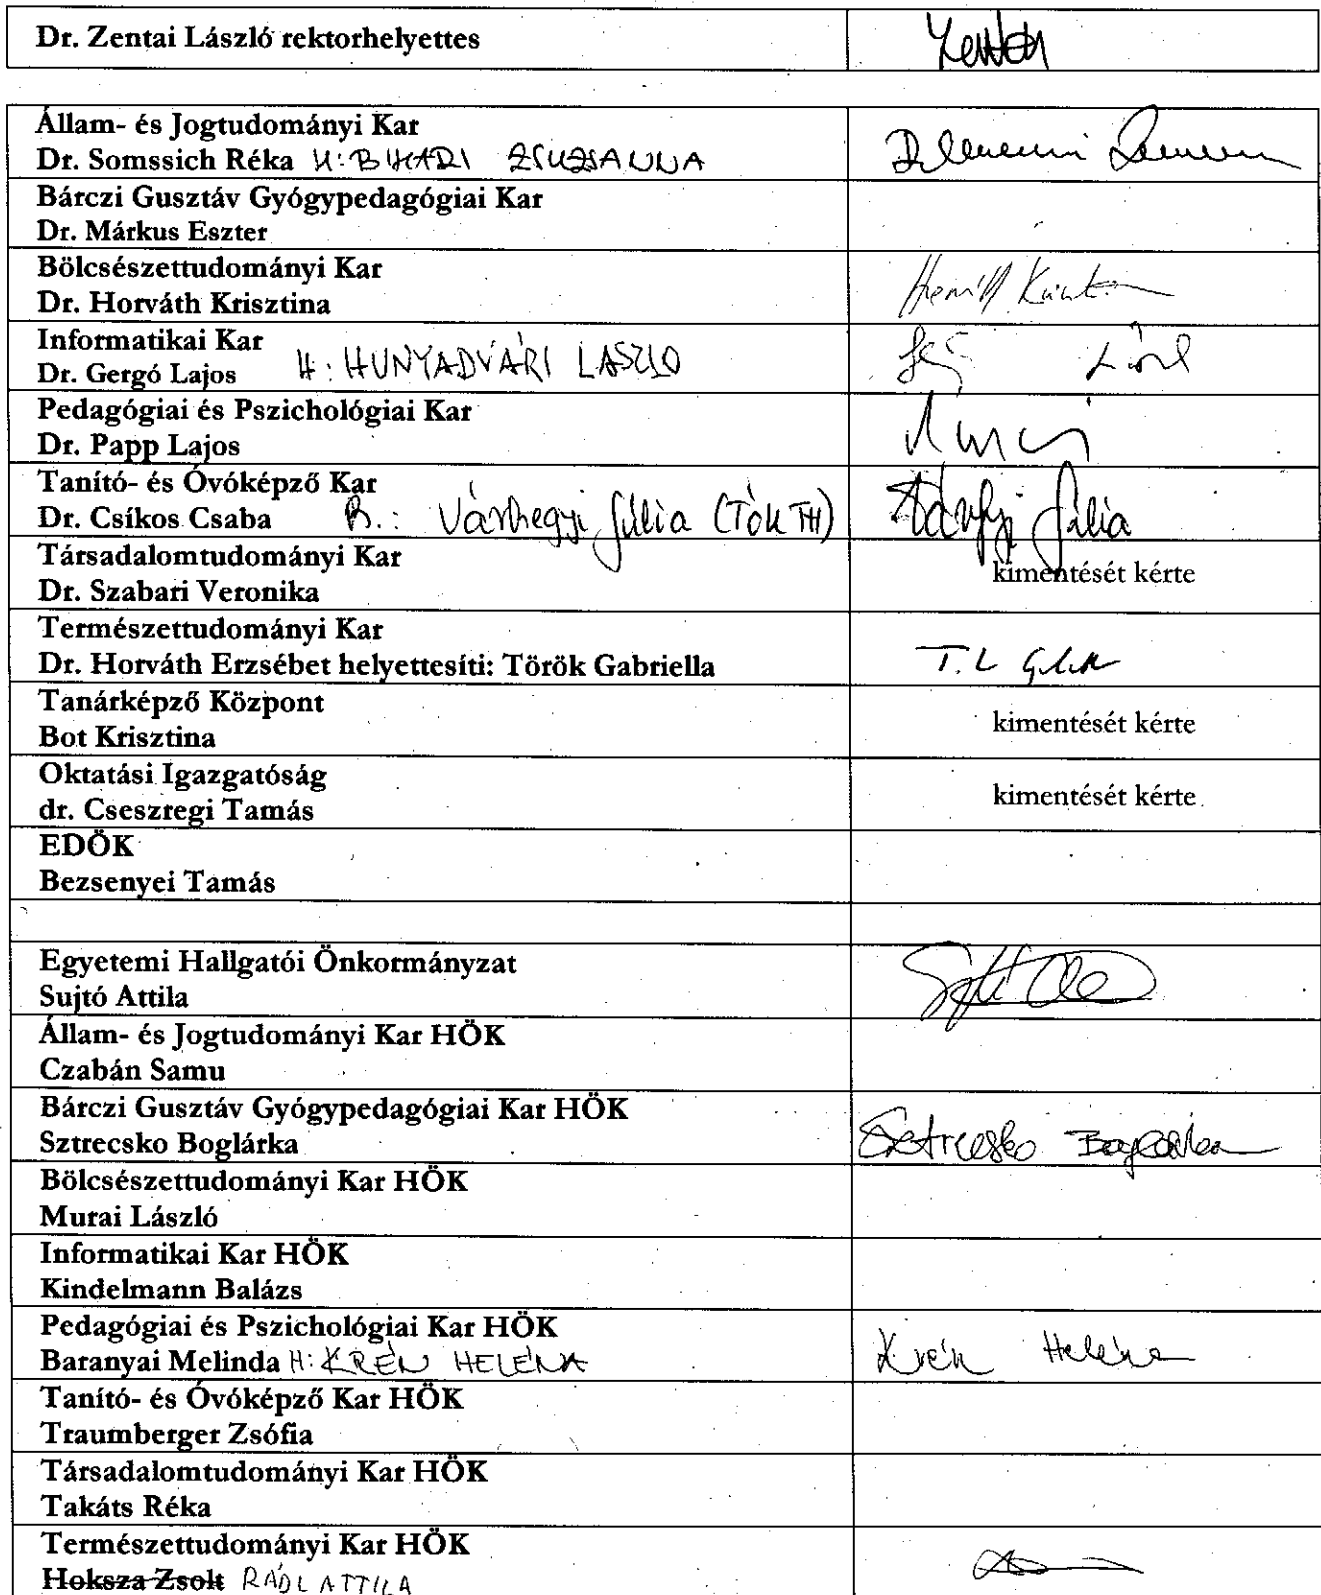 Dr. Zentai László rektorhelyettes
Zentai
Állam- és Jogtudományi Kar
Dr. Somssich Réka H: BIHARI ZSUZSANNA
Bárczi Gusztáv Gyógypedagógiai Kar
Dr. Márkus Eszter
Bölcsészettudományi Kar
Dr. Horváth Krisztina
Informatikai Kar
Dr. Gergó Lajos H: HUNYADVÁRI LASZLO
Pedagógiai és Pszichológiai Kar
Dr. Papp Lajos
Tanító- és Óvóképző Kar
Dr. Csíkos Csaba h.: Várhegyi Júlia (TÓK TH)
Társadalomtudományi Kar
Dr. Szabari Veronika
kimentését kérte
Természettudományi Kar
Dr. Horváth Erzsébet helyettesíti: Török Gabriella
Tanárképző Központ
Bot Krisztina
kimentését kérte
Oktatási Igazgatóság
dr. Cseszregi Tamás
kimentését kérte
EDÖK
Bezsenyei Tamás
Egyetemi Hallgatói Önkormányzat
Sujtó Attila
Állam- és Jogtudományi Kar HÖK
Czabán Samu
Bárczi Gusztáv Gyógypedagógiai Kar HÖK
Sztrecsko Boglárka
Sztrecsko Boglárka
Bölcsészettudományi Kar HÖK
Murai László
Informatikai Kar HÖK
Kindelmann Balázs
Pedagógiai és Pszichológiai Kar HÖK
Baranyai Melinda H: KRÉN HELÉNA
Krén Heléna
Tanító- és Óvóképző Kar HÖK
Traumberger Zsófia
Társadalomtudományi Kar HÖK
Takáts Réka
Természettudományi Kar HÖK
Hoksza Zsolt RÁDL ATTILA